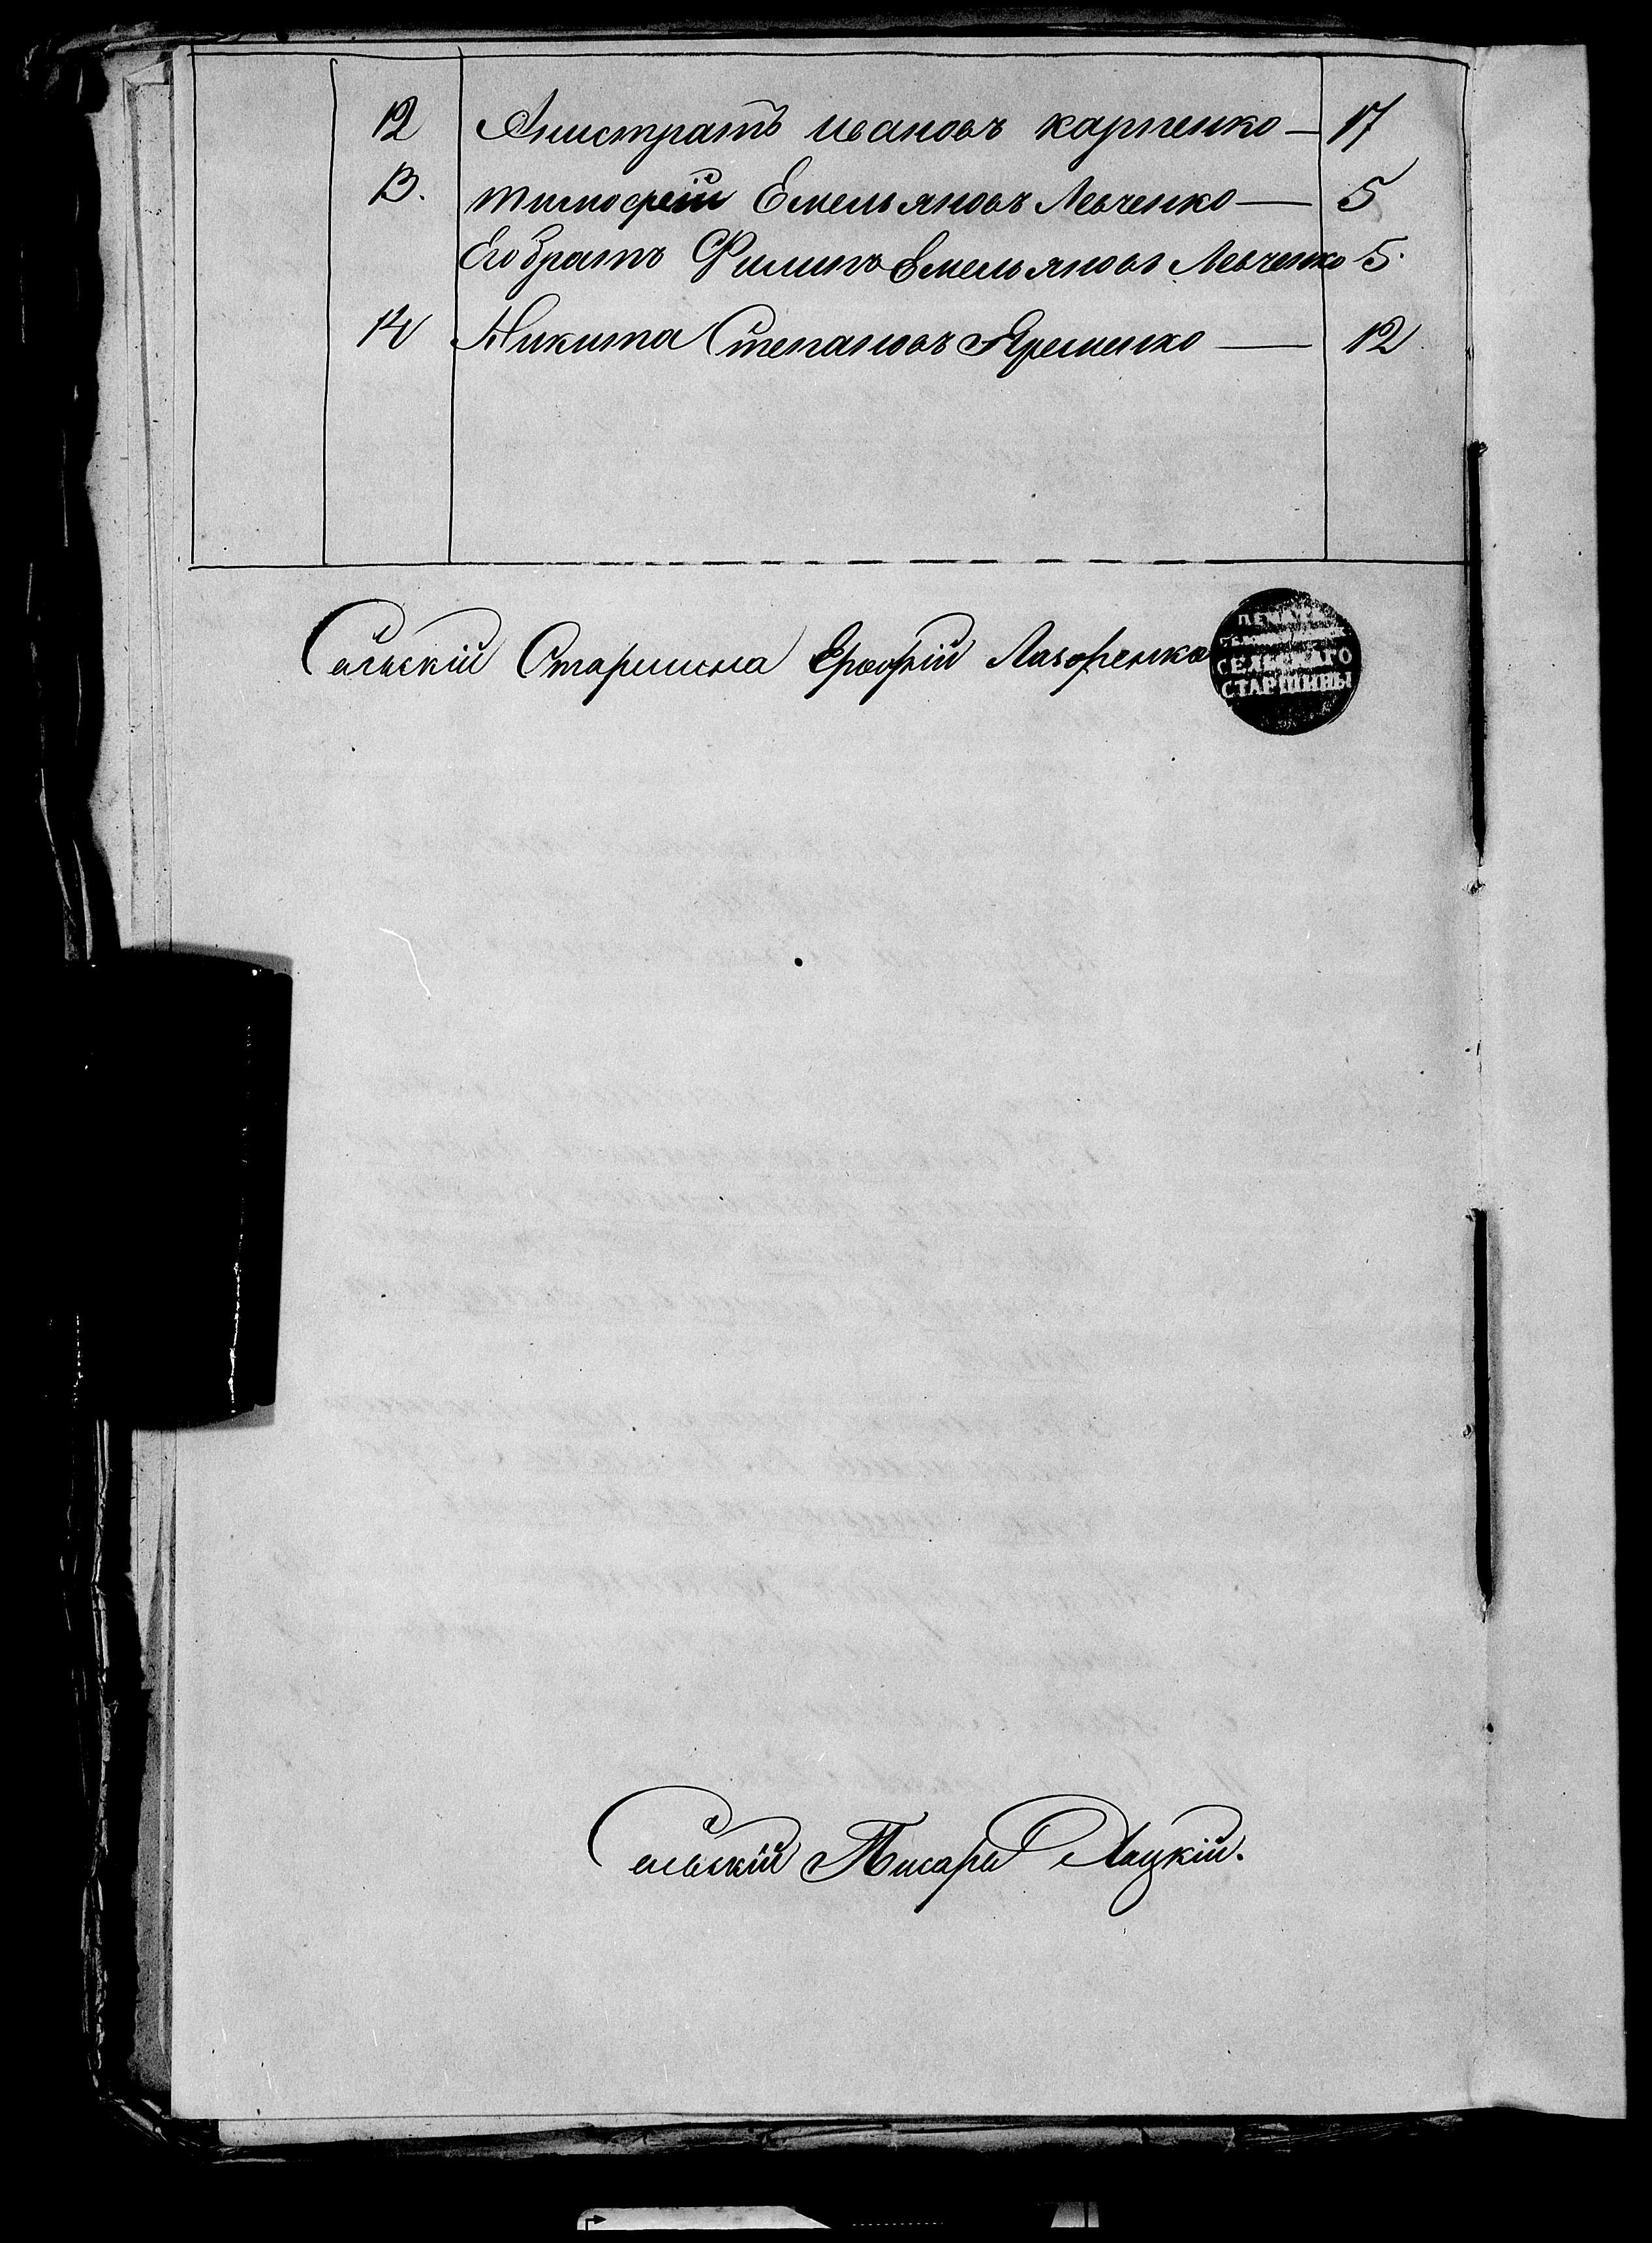 12 Анистратъ Ивановъ карпенко — 17
13. Тимофеій Емельяновъ Левченко — 5
Его братъ Филипъ Емельяновъ Левченко 5.
14 Никита Степановъ Яременко — 12
Сельскій Старшина Ерофій Лазоренко
ПЕЧАТЬ
СЕЛЬСКАГО
СТАРШИНЫ
Сельскій Писарь Лацкій.